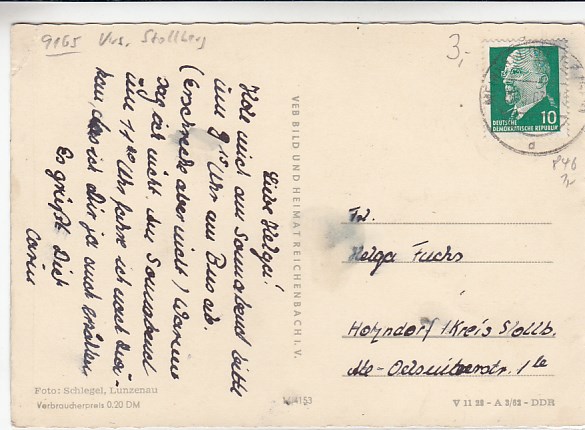 9165 Vus. Stollberg
3,-
DEUTSCHE
DEMOKRATISCHE REPUBLIK
10
d
Liebe Helga!
Hole mich am Sonnabend bitte
um 9 15 Uhr am Bus ab.
(erschrecke aber nicht) Warum
sag ich nicht. Am Sonnabend
um 11 20 Uhr fahre ich nach
kam, das ich Dir ja auch erzählen
Es grüßt Dich
VEB BILD UND HEIMAT REICHENBACH I. V.
Frl.
Helga Fuchs
/Kreis Stollb.
1
Foto: Schlegel, Lunzenau
Verbraucherpreis 0.20 DM
V 11 28 - A 3/62 - DDR